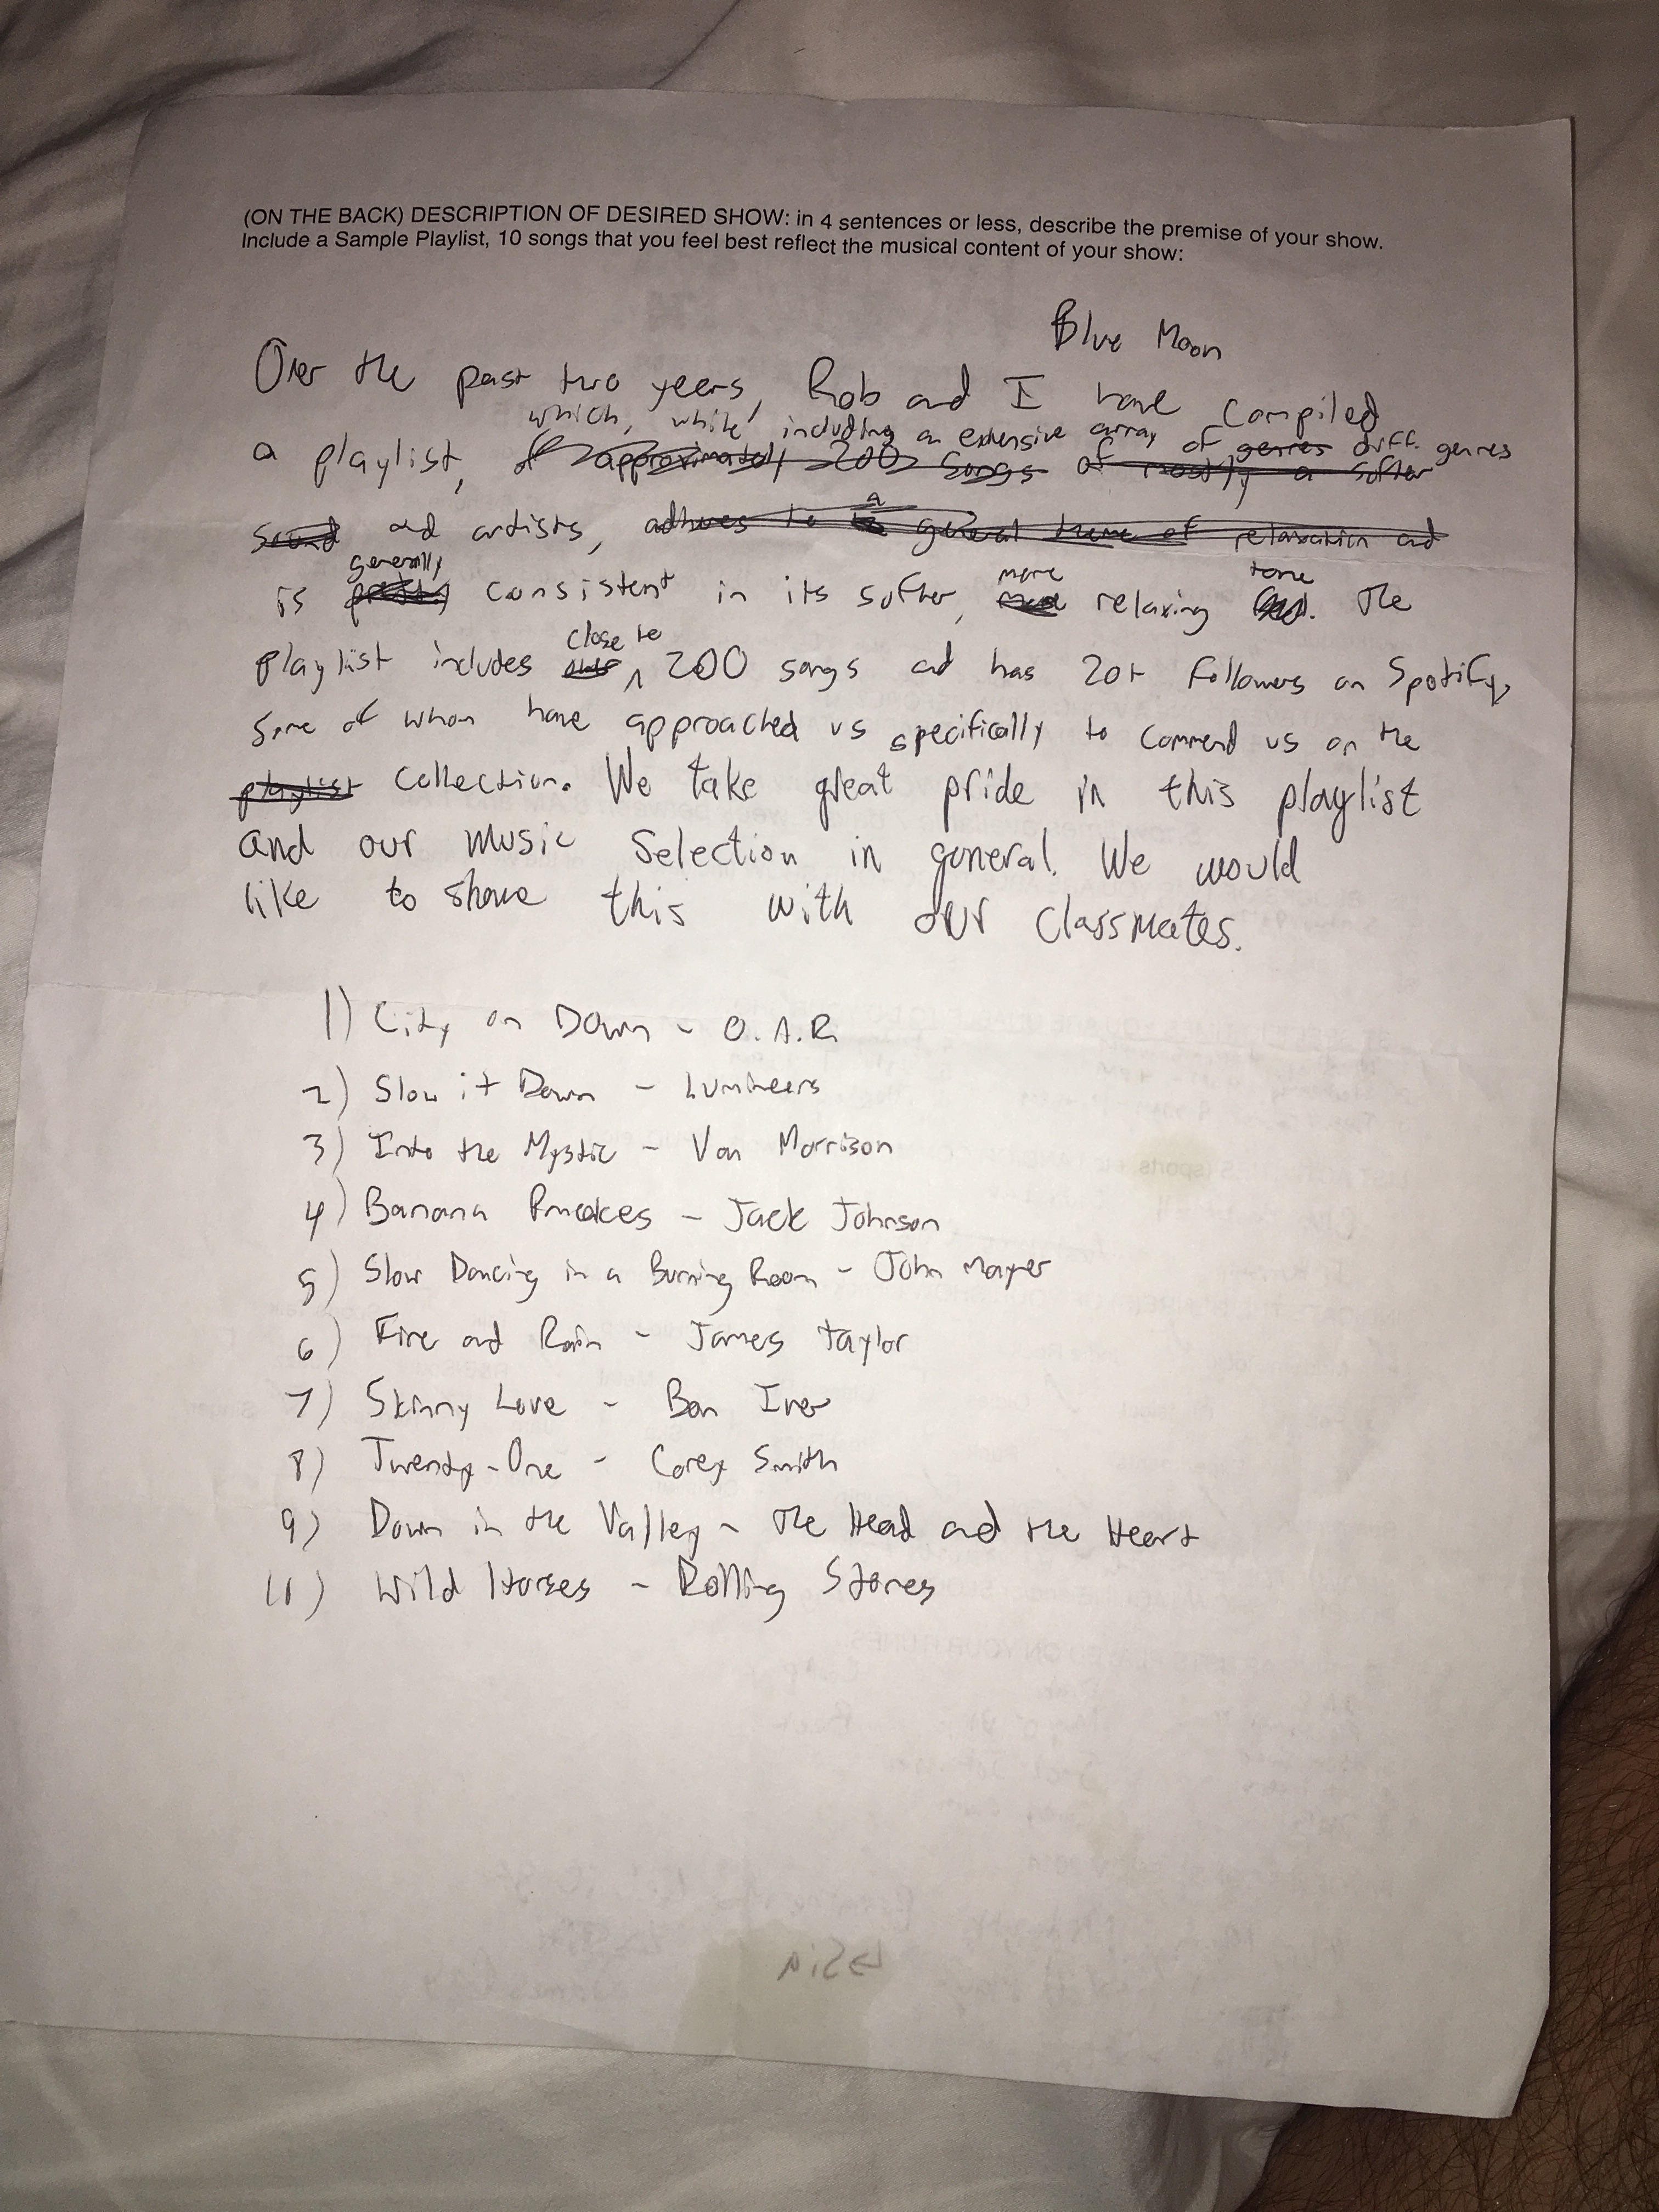 (ON THE BACK) DESCRIPTION OF DESIRED SHOW: in 4 sentences or less, describe the premise of your show.
Include a Sample Playlist, 10 songs that you feel best reflect the musical content of your show:
Blue Moon
Over the past two years, Rob and I have compiled
which, while including an extensive array of genres diff. genres
a playlist, of approximately 200 songs of mostly a softer
sound and artists, adheres to a general theme of relaxation and
generally more tone
is consistent in its softer, relaxing . The
close to
playlist includes 200 songs and has 20+ followers on Spotify,
some of whom have approached us specifically to commend us on the
playlist collection. We take great pride in this playlist
and our music selection in general. We would
like to share this with our classmates.
1) City on Down - O.A.R
2) Slow it Down - Lumineers
3) Into the Mystic - Van Morrison
4) Banana Pancakes - Jack Johnson
5) Slow Dancing in a Burning Room - John Mayer
6) Fire and Rain - James Taylor
7) Skinny Love - Bon Iver
8) Twenty-One - Corey Smith
9) Down in the Valley - The Head and the Heart
10) Wild Horses - Rolling Stones